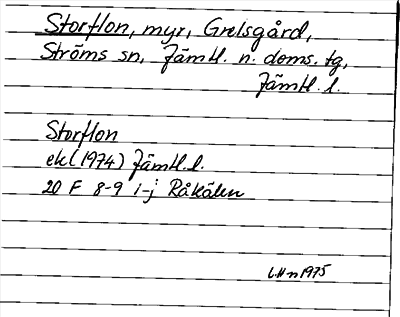 Storflon, myr, Grelsgård,
Ströms sn, Jämtl. n. doms. tg,
Jämtl. l.
Storflon
ek (1974) Jämtl. l.
20 F 8-9 i-j Råkälen
L.H-n 1975